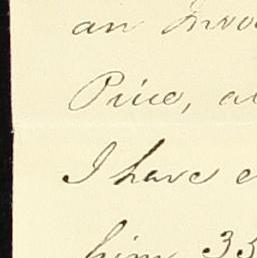 an Invo
Price, a
I have e
him 33